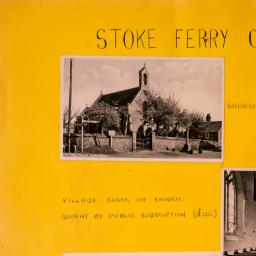 STOKE FERRY C
CHURCH
VILLAGE CLOCK ON CHURCH
BOUGHT BY PUBLIC SUBSCRIPTION